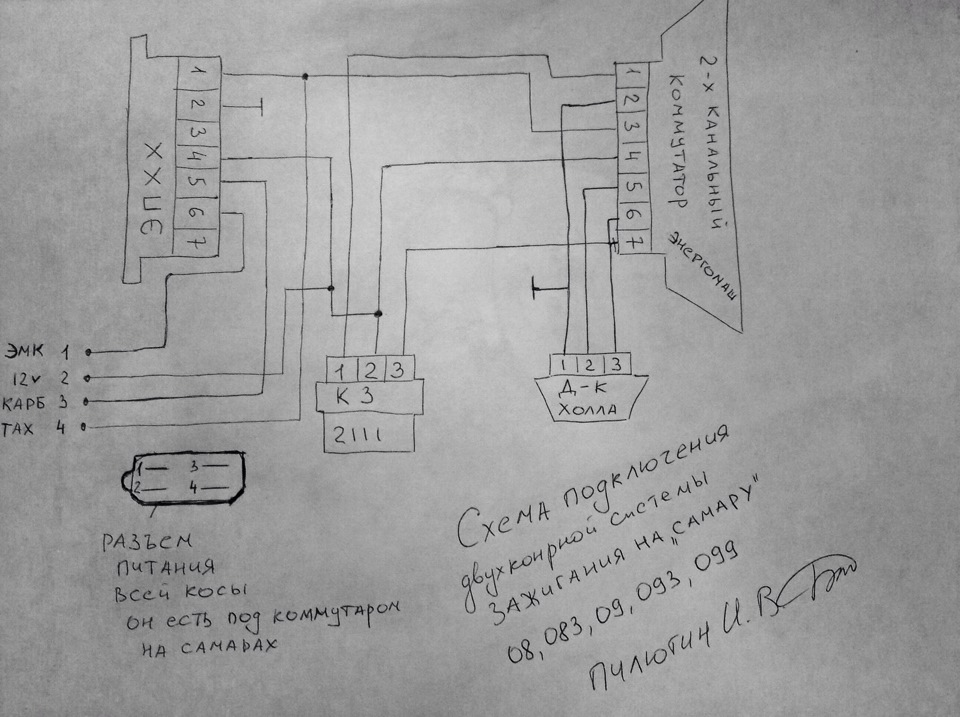 1
2
3
4
5
6
7
ХХЦЕ
1
2
3
4
5
6
7
2-х КАНАЛЬНЫЙ
КОММУТАТОР
ЭНЕРГОМАШ
ЭМК 1
12v 2
КАРБ 3
ТАХ 4
1 2 3
КЗ
2111
1 2 3
Д-К
ХОЛЛА
1 3
2 4
РАЗЪЕМ
ПИТАНИЯ
ВСЕЙ КОСЫ
ОН ЕСТЬ ПОД КОММУТАРОМ
НА САМАРАХ
Схема подключения
двухконрной системы
Зажигания на „САМАРУ"
08, 083, 09, 093, 099
Пилютин И. В